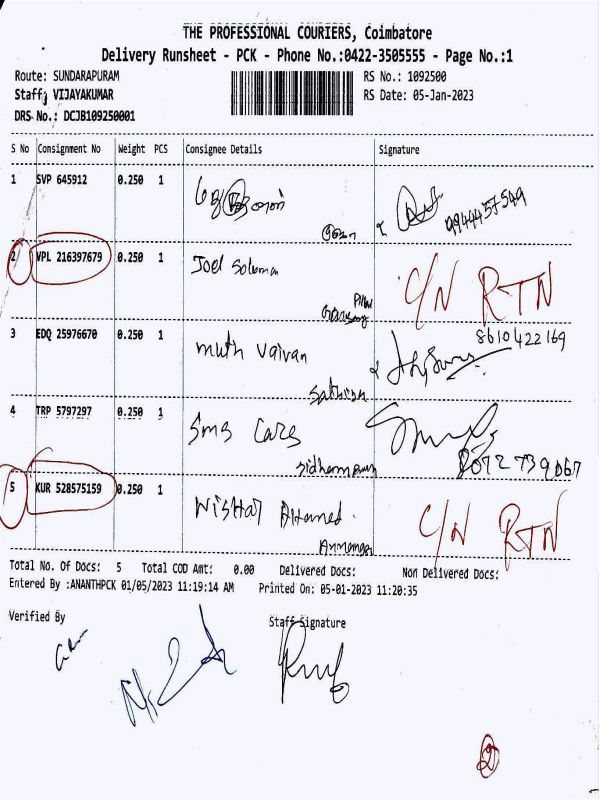 THE PROFESSIONAL COURIERS, Coimbatore
Delivery Runsheet - PCK - Phone No.:0422-3505555 - Page No.:1
Route: SUNDARAPURAM
RS No.: 1092500
Staff: VIJAYAKUMAR
RS Date: 05-Jan-2023
DRS No.: DCJB109250001
S No Consignment No Weight PCS Consignee Details Signature
1 SVP 645912 0.250 1
9944457549
2 VPL 216397679 0.250 1 Joel Soloman C/N RTN
3 EDQ 25976670 0.250 1 Muth Vaivan 8610422169
4 TRP 5797297 0.250 1 Sms Cars
8072739067
5 KUR 528575159 0.250 1 Nishat Ahamed. C/N RTN
Total No. Of Docs: 5 Total COD Amt: 0.00 Delivered Docs: Non Delivered Docs:
Entered By :ANANTHPCK 01/05/2023 11:19:14 AM Printed On: 05-01-2023 11:20:35
Verified By Staff Signature
2